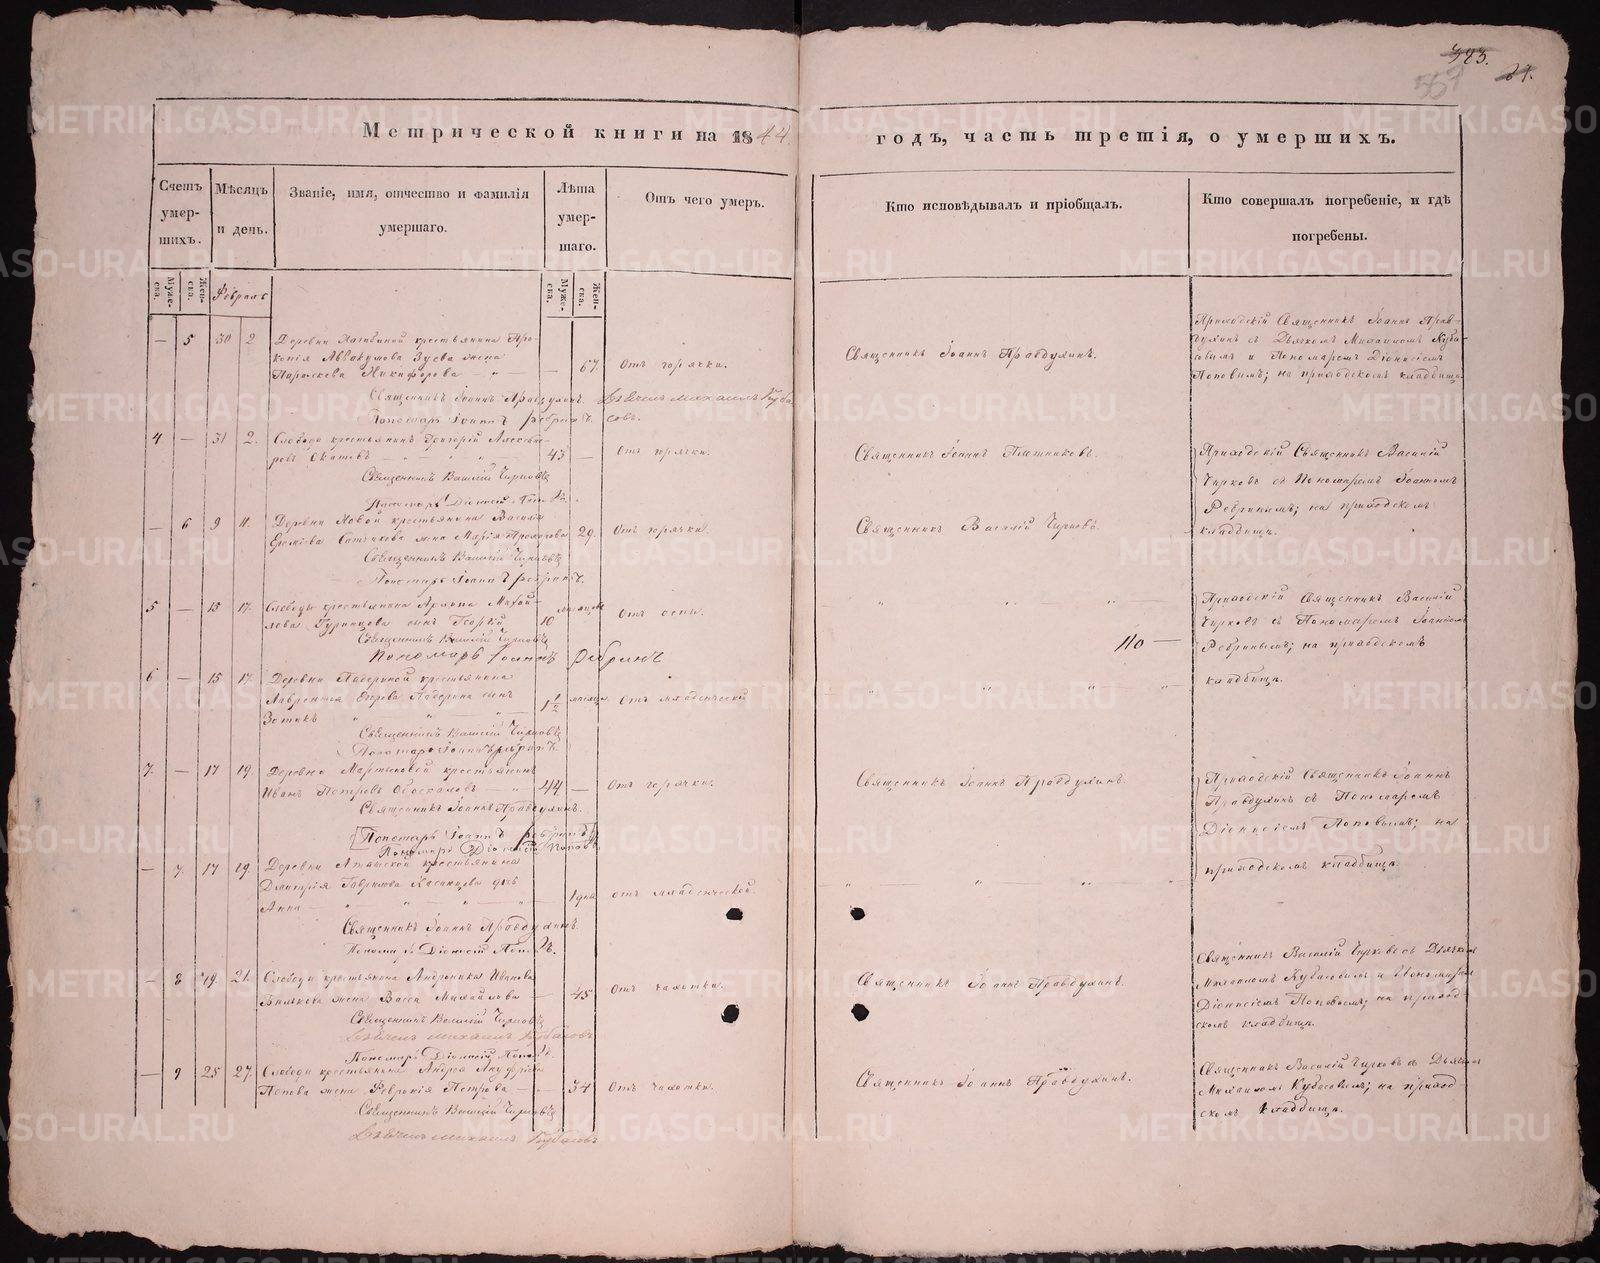 383.
567
27.
Метрической книги на 1844. годъ, часть третія, о умершихъ.
Счетъ умер-шихъ.
Мѣсяцъ и день.
Званіе, имя, отчество и фамилія умершаго.
Лѣта умер-шаго.
Отъ чего умеръ.
Кто исповѣдывалъ и пріобщалъ.
Кто совершалъ погребеніе, и гдѣ погребены.
Муже-ска.
Жен-ска.
Февраль
Муже-ска.
Жен-ска.
— 5 30 2 Деревни крестьянина Про-
копія Аввакумова Зуева жена
Параскева Никифорова — 67. Отъ горячки. Священникъ Іоаннъ Правдухинъ.
Приходскій Священникъ Іоаннъ Прав-
духинъ съ Дьячкомъ Михаиломъ Куба-
совымъ и Пономаремъ Діонисіемъ
Поповымъ; на приходскомъ кладбищѣ.
Священникъ Іоаннъ Правдухинъ. Дьячекъ Михаилъ Куба-
Пономарь Іоаннъ Ребринъ. совъ.
4 — 31 2. Слободы крестьянинъ Григорій
43 — Отъ горячки. Священникъ Іоаннъ Плотниковъ.
Приходскій Священникъ Василій
Чирковъ съ Пономаремъ Іоанномъ
Ребринымъ; на приходскомъ
кладбищѣ.
Священникъ Василій Чирковъ
Пономарь Діонисій Поповъ.
— 6 9 11. Деревни Новой крестьянина Василія
жена Марія Прохорова 29. Отъ горячки. Священникъ Василій Чирковъ.
Священникъ Василій Чирковъ
Пономарь Іоаннъ Ребринъ.
5 — 15 17. Слободы крестьянина Архипа Михай-
лова сынъ Георгій 10 мѣсяцевъ Отъ оспы.
Приходскій Священникъ Василій
Чирковъ съ Пономаремъ Іоанномъ
Ребринымъ; на приходскомъ
кладбищѣ.
Священникъ Василій Чирковъ
Пономарь Іоаннъ Ребринъ
110 —
6 — 15 17. Деревни Падериной крестьянина
Лаврентія Егорова Падерина сынъ
Зотикъ 1½ мѣсяца Отъ младенческой
Священникъ Василій Чирковъ
Пономарь Іоаннъ Ребринъ.
7. — 17 19. Деревни Мартыновой крестьянинъ
Иванъ Петровъ — 44 — Отъ горячки. Священникъ Іоаннъ Правдухинъ.
Приходскій Священникъ Іоаннъ
Правдухинъ съ Пономаремъ
Діонисіемъ Поповымъ; на
приходскомъ кладбищѣ.
Священникъ Іоаннъ Правдухинъ.
Пономарь Іоаннъ Ребринъ
Пономарь Діонисій Поповъ.
— 7. 17 19. Деревни крестьянина
Дмитрія Гаврилова дочь
Анна — 1 дня отъ младенческой.
Священникъ Іоаннъ Правдухинъ.
Пономарь Діонисій Поповъ.
— 8 19. 21. Слободы крестьянина Андроника Иванова
жена Васса Михайлова — 45 Отъ чахотки. Священникъ Іоаннъ Правдухинъ.
Священникъ Василій Чирковъ съ Дьячкомъ
Михаиломъ Кубасовымъ и Пономаремъ
Діонисіемъ Поповымъ; на приход-
скомъ кладбищѣ.
Священникъ Василій Чирковъ
Дьячекъ Михаилъ Кубасовъ
Пономарь Діонисій Поповъ.
— 9 25 27. Слободы крестьянина Андрея
Попова жена Февронія Петрова — 34 Отъ чахотки. Священникъ Іоаннъ Правдухинъ.
Священникъ Василій Чирковъ съ Дьячкомъ
Михаиломъ Кубасовымъ; на приход-
скомъ кладбищѣ.
Священникъ Василій Чирковъ
Дьячекъ Михаилъ Кубасовъ
METRIKI.GASO-URAL.RU